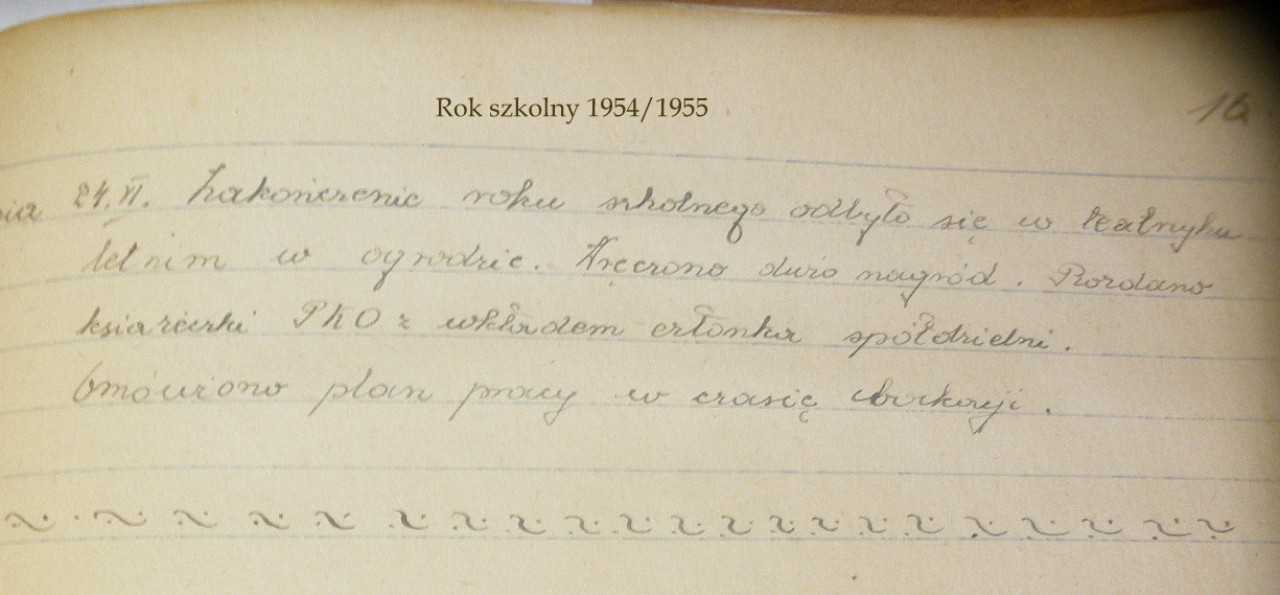 Rok szkolny 1954/1955
16
24.VI. Zakończenie roku szkolnego odbyło się w teatrzyku
letnim w ogrodzie. Wręczono dużo nagród. Rozdano
książeczki PKO z wkładem członka spółdzielni.
Omówiono plan pracy w czasię